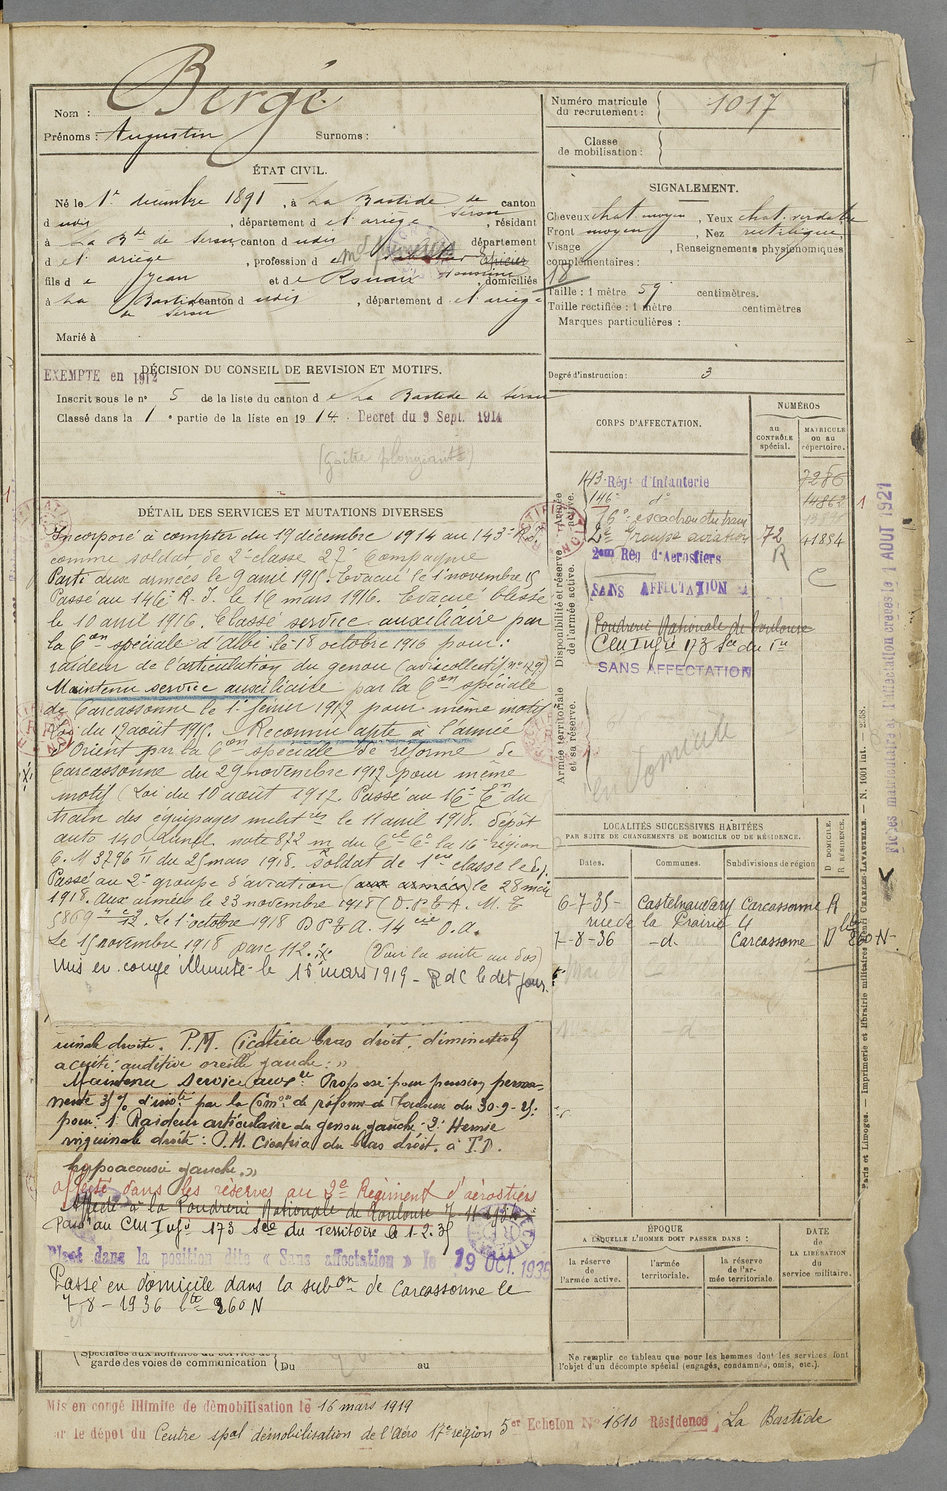 Nom : Bergé
Prénoms : Augustin Surnoms :
Numéro matricule du recrutement : 1017
Classe de mobilisation :
ÉTAT CIVIL.
Né le 1er décembre 1891, à La Bastide de Serou canton
d udit, département d e l'ariège, résidant
à La Bde de Serou, canton d udit département
d e l'ariège, profession d
fils d e Jean et d e domiciliés
à La Bastide de Serou canton d udit, département d e l'ariège
Marié à
SIGNALEMENT.
Cheveux chat. moyen, Yeux chat. verdâtre
Front moyen, Nez rectiligne
Visage , Renseignements physionomiques
complémentaires :
Taille : 1 mètre 59 centimètres.
Taille rectifiée : 1 mètre centimètres
Marques particulières :
Degré d'instruction : 3
EXEMPTE en 1912
DÉCISION DU CONSEIL DE REVISION ET MOTIFS.
Inscrit sous le no 5 de la liste du canton d e La Bastide de Serou
Classé dans la 1e partie de la liste en 1914. Decret du 9 Sept. 1914
(Goitre plongeant)
DÉTAIL DES SERVICES ET MUTATIONS DIVERSES
Incorporé à compter du 19 décembre 1914 au 143e R.I.
comme soldat de 2e classe 22e Compagnie
Parti aux armées le 9 avril 1915. Evacué le 1 novembre 15
Passé au 146e R.I. le 16 mars 1916. Evacué blessé
le 10 avril 1916. Classé service auxiliaire par
la Con spéciale d'Albi le 18 octobre 1916 pour :
raideur de l'articulation du genou (avis collectif no 479)
Maintenu service auxiliaire par la Con spéciale
de Carcassonne le 1er février 1917 pour même motif
Loi du 17 août 1915. Reconnu apte à l'armée
d'Orient par la Con spéciale de réforme de
Carcassonne du 29 novembre 1917 pour même
motif (Loi du 10 août 1917. Passé au 16e En du
train des équipages militres le 11 avril 1918. dépôt
auto 140 note 872 m du Cel Ct la 16e région
C. M 3796 11 du 25 mars 1918. Soldat de 1ère classe le
Passé au 2e groupe d'aviation (aux armées) le 28 mai
1918. Aux armées le 23 novembre 1918 (D.P.E.A. M. E
Le 1er octobre 1918 D P E A. 14
Le 15 novembre 1918 parc 112. (Voir la suite au dos)
Mis en congé illimité le 15 mars 1919 - R d C le dit jour.
guinale droite. P.M. Cicatrice bras droit, diminution
acuité auditive oreille gauche. »
Maintenu service auxre. Proposé pour pension perma-
nente 35% d'invté par la Comon de réforme de Toulouse du 30-9-25.
pour : 1° Raideur articulaire du genou gauche 2° Hernie
inguinale droite : P.M. Cicatrice du bras droit. à I.D.
hypoacousie gauche. »
Affecté dans les réserves au 2e Régiment d'aérostiers
Affecté à la Poudrerie Nationale de Toulouse
Passé au CM Infie 173 Sce du Territoire le 1.2.35
Placé dans la position dite « Sans affectation » le 19 OCT. 1935
Passé en domicile dans la subon de Carcassonne le
7-8-1936 lte 260 N
Spéciales aux hommes du service de
garde des voies de communication Du au
CORPS D'AFFECTATION.
NUMÉROS
au CONTRÔLE spécial.
MATRICULE ou au répertoire.
Armée active.
Disponibilité et réserve de l'armée active.
Armée territoriale et sa réserve.
143e Régt d'Infanterie 7286
146e do 14862
16e escadron du train
2e Groupe aviation 72 41854
2eme Rég d'Aerostiers R
SANS AFFECTATION C
Poudrerie Nationale de Toulouse
CM Infie 173 Sce du Tre
SANS AFFECTATION
en Domicile
LOCALITÉS SUCCESSIVES HABITÉES
PAR SUITE DE CHANGEMENTS DE DOMICILE OU DE RÉSIDENCE.
Dates. Communes. Subdivisions de région D DOMICILE. R RÉSIDENCE.
6-7-35- Castelnaudary Carcassonne R
rue de la Prairie 4
7-8-36 -d- Carcassonne D lte 260 N-
ÉPOQUE
A LAQUELLE L'HOMME DOIT PASSER DANS :
la réserve de l'armée active.
l'armée territoriale.
la réserve de l'armée territoriale.
DATE de LA LIBÉRATION du service militaire.
Ne remplir ce tableau que pour les hommes dont les services font
l'objet d'un décompte spécial (engagés, condamnés, omis, etc.).
Fiches matriculaire et d'affectation créées le 1 AOUT 1921
Paris et Limoges. — Imprimerie et librairie militaires Henri CHARLES-LAVAUZELLE. — N. 1001 int. — 2.58.
Mis en congé illimité de démobilisation le 16 mars 1919
ar le dépot du Centre spal démobilisation de l'Aéro 17e région 5er Echelon No 1610 Résidence La Bastide